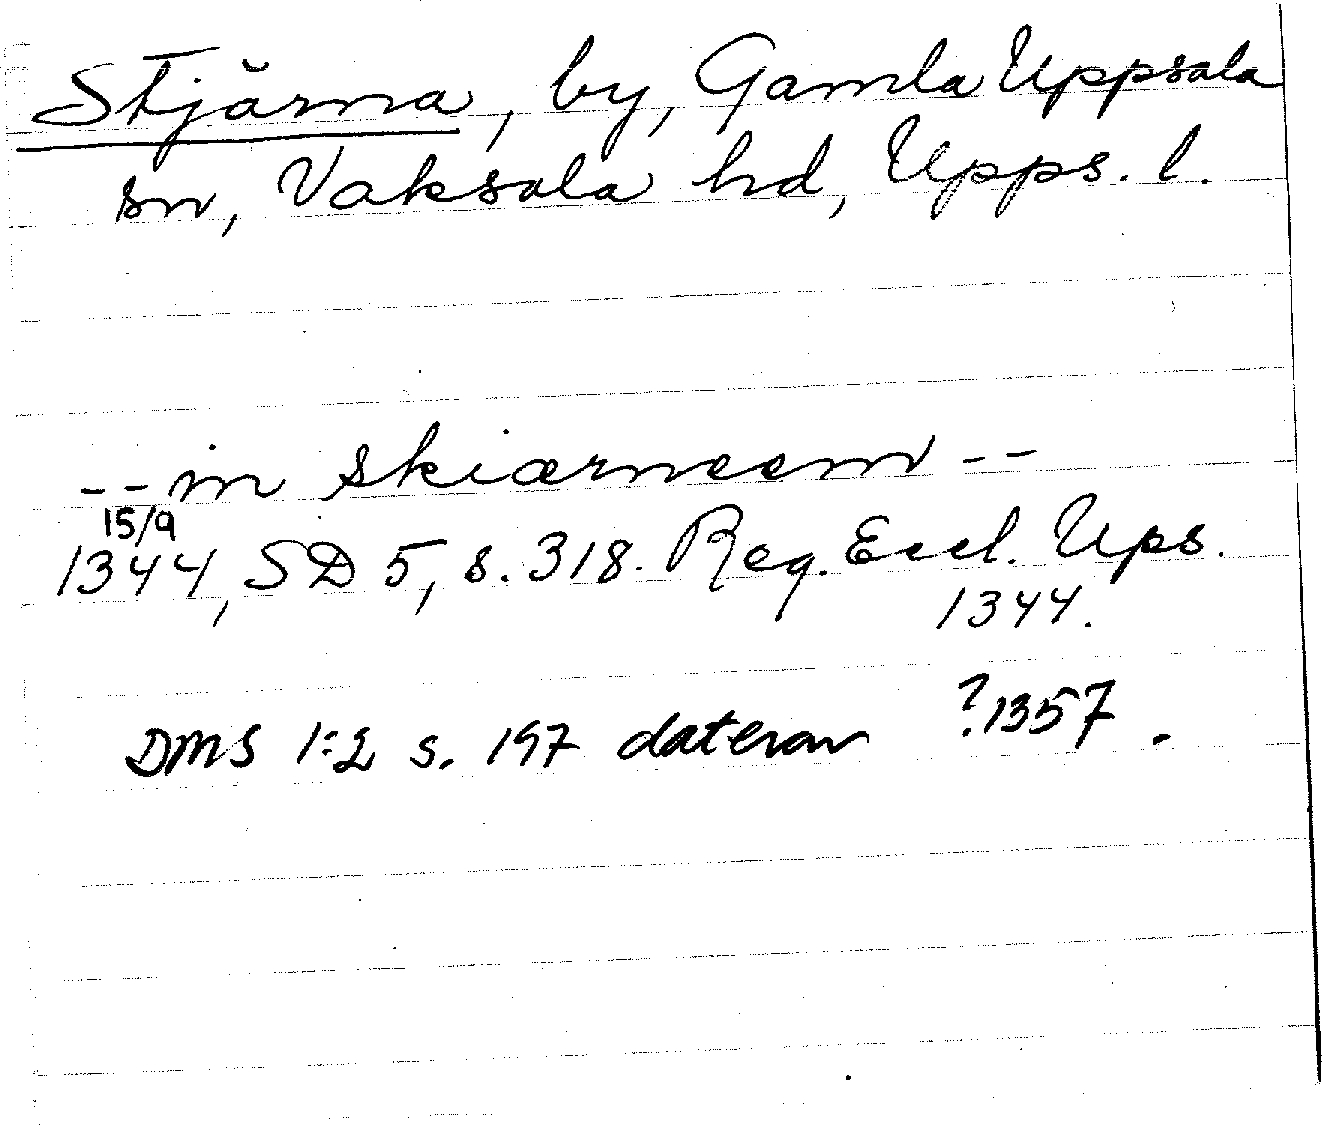 Stjärna, by, Gamla Uppsala
sn, Vaksala hd, Upps. l.
-- in skiærneem --
15/9
1344, SD 5, s. 318. Reg. Eccl. Ups.
1344.
DMS 1:2 s. 197 daterar ?1357.